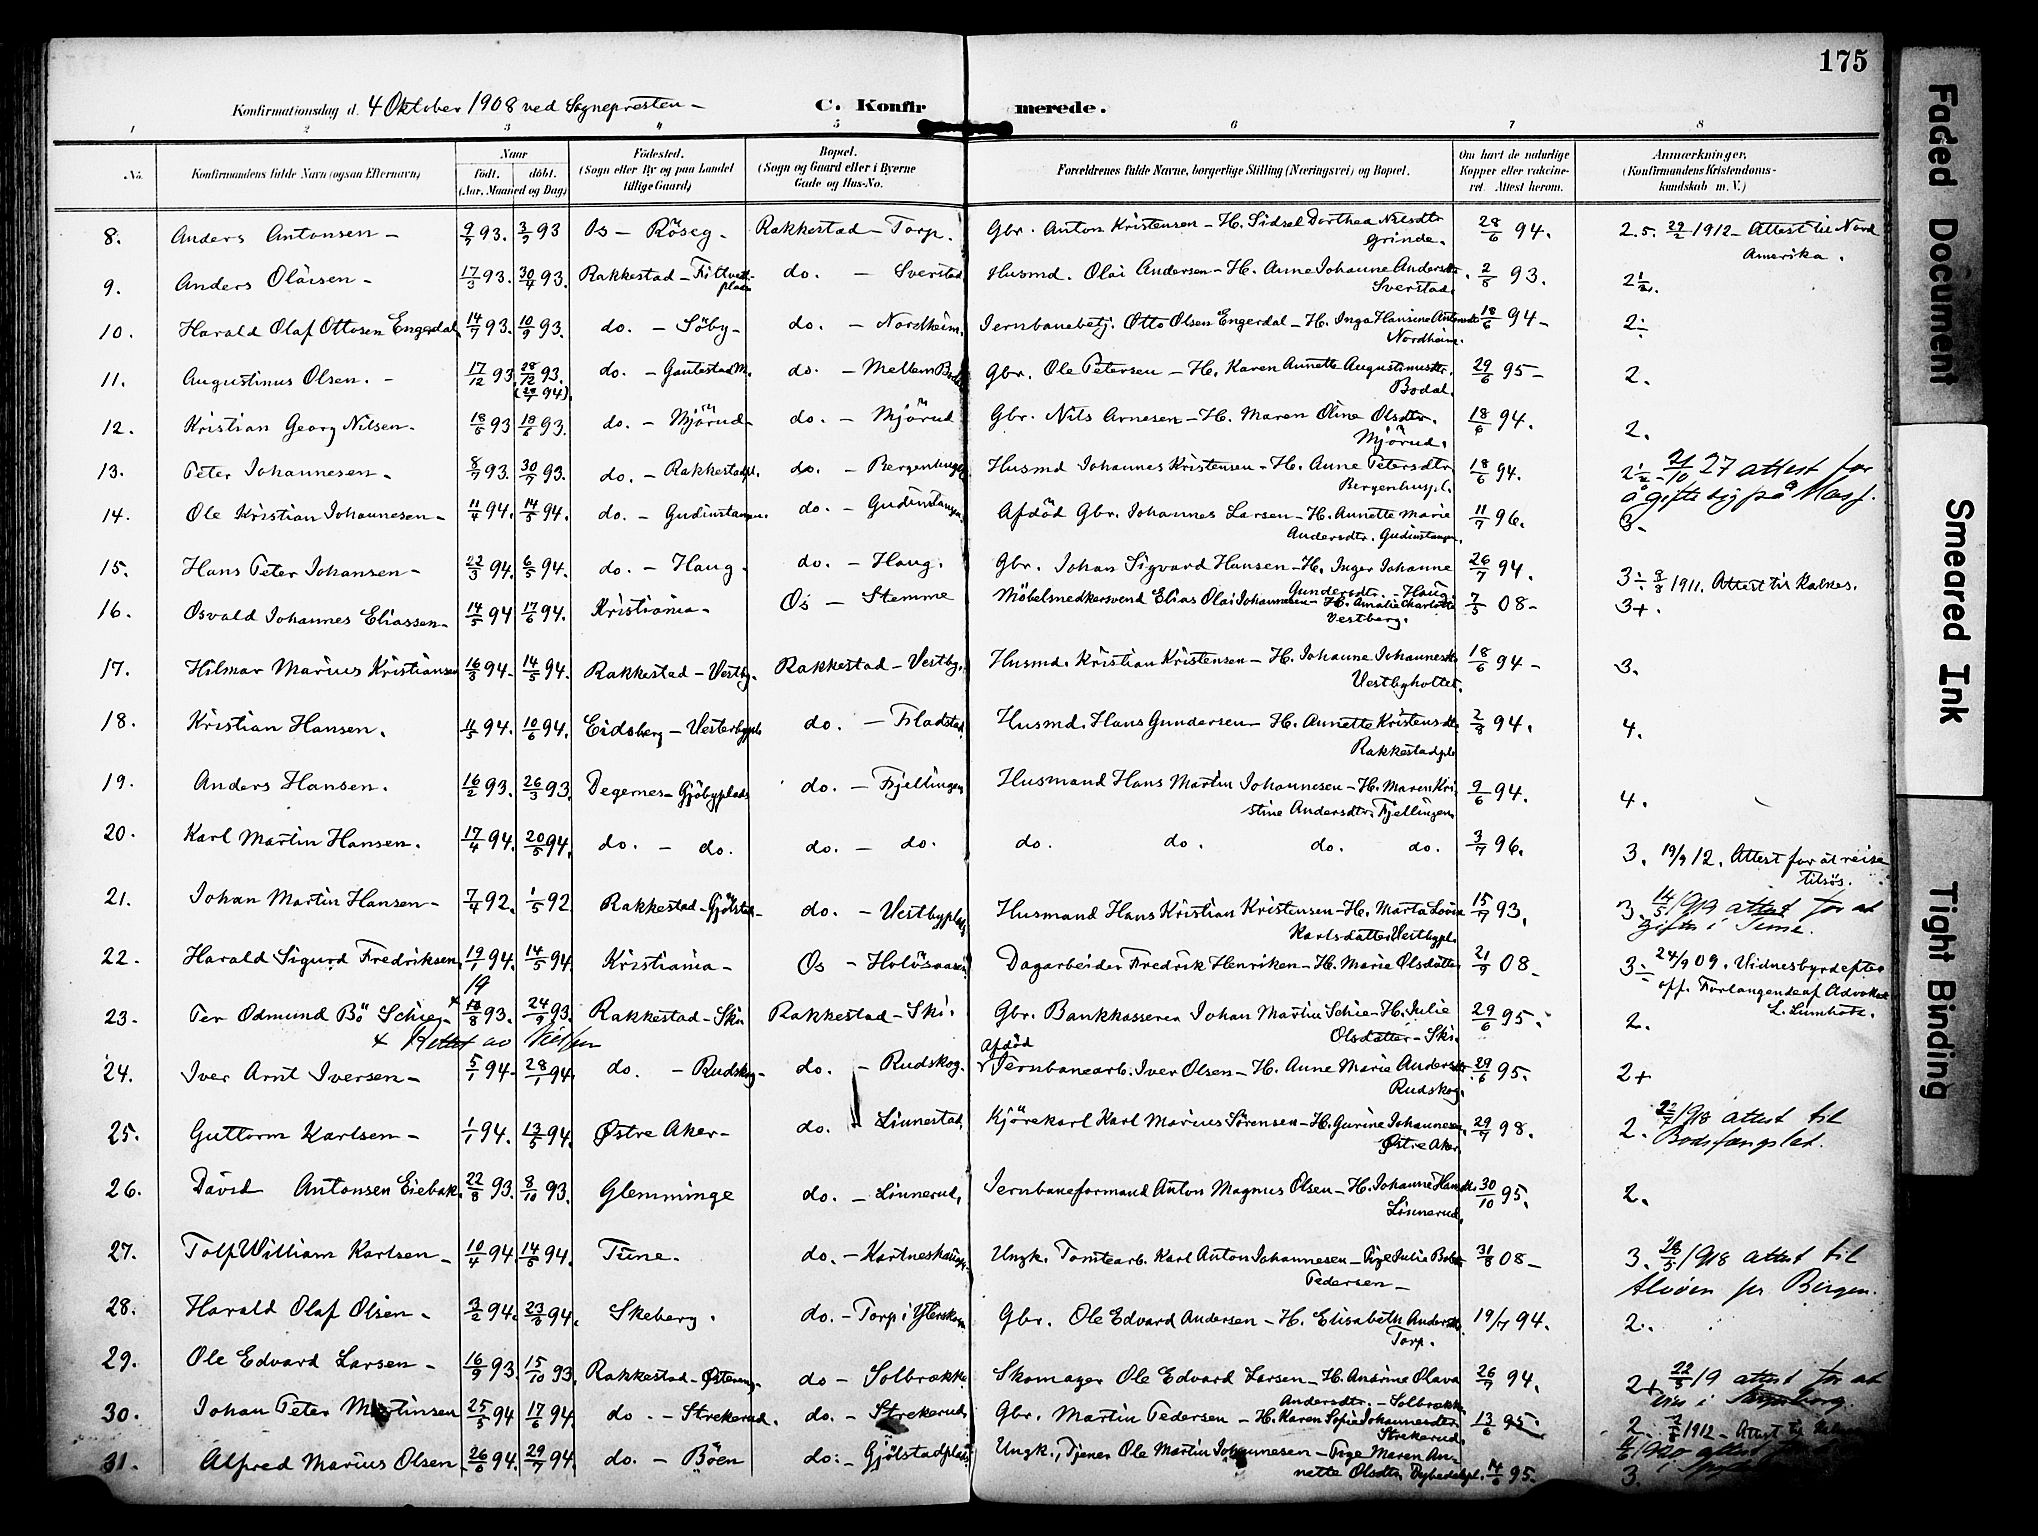 175
Konfirmationsdag d. 4 Oktober 1908 ved Sognepresten –
C. Konfirmerede.
1 2 3 4 5 6 7 8
No. Konfirmandens fulde Navn (ogsaa Efternavn) Naar født. døbt. (Aar, Maaned og Dag) Fødested. (Sogn eller By og paa Landet tillige Gaard) Bopæl. (Sogn og Gaard eller i Byerne Gade og Hus-No. Forældrenes fulde Navne, borgerlige Stilling (Næringsvei) og Bopæl. Om havt de naturlige Kopper eller vakcineret. Attest herom. Anmærkninger. (Konfirmandens Kristendomskundskab m. V.)
8. Anders Antonsen – 9/7 93. 3/9 93 Os – Röseg – Rakkestad – Torp. Gbr. Anton Kristensen – H. Sidsel Dorthea Nilsdtr Grinde. 28/6 94. 2.5. 22/2 1912 – Attest til Nord Amerika.
9. Anders Olaisen – 17/3 93. 30/4 93. Rakkestad – do. – Sverstad Husmd. Olai Andersen – H. Anne Johanne Andersdtr. Sverstad. 2/8 93. 2½.
10. Harald Olaf Ottosen Engerdal 14/7 93. 10/9 93. do. – Söby – do. – Nordheim. Jernbanebetj. Otto Olsen Engerdal – H. Inga Hansine Nordheim. 18/6 94 – 2÷
11. Augustinus Olsen. – 17/12 93 28/12 93. do. – Gautestad M. do. – Mellem Bodal Gbr. Ole Petersen – H. Karen Annette Augustinusdtr. Bodal. 29/6 95 – 2.
12. Kristian Georg Nilsen. 18/6 93 do. – Mjörud – do. – Mjörud Gbr. Nils Arnesen – H. Maren Oline Olsdtr. Mjörud. 18/6 94. 2.
13. Peter Johannesen – 8/7 93. 30/7 93. do. – Rakkestadpl. do. – Husmd Johannes Kristensen – H. Anne Petersdtr Bergenhuspl. 18/6 94. 2½ – 21/10 27 attest for å gifte sig på
14. Ole Kristian Johannesen – 11/4 94. 14/5 94. do. – Gudimstangen. do. – Gudimstangen Afdöd Gbr. Johannes Larsen – H. Annette Marie Andersdtr. Gudimstangen. 11/7 96. 3 –
15. Hans Peter Johansen – 22/3 94. 6/5 94. do. – Haug. do. – Haug. Gbr. Johan Sigvard Hansen – H. Inger Johanne Gundersdtr. – Haug 26/7 94. 3÷ 9/8 1911. Attest til Kalnes.
16. Osvald Johannes Eliassen – 14/5 94 17/6 94. Kristiania – Os – Stemme Möbelsnedkersvend Elias Olai Johannesen – H. Amalie Charlotte Vestberg. 7/5 08 – 3+.
17. Hilmar Marius Kristiansen 16/3 94. 14/5 94. Rakkestad – Vestby. Rakkestad – Vestby. Husmd. Kristian Kristensen – H. Johanne Johannesdtr. Vestbyholtet. 18/6 94 – 3.
18. Kristian Hansen. 11/5 94. 10/6 94. Eidsberg – do. – Fladstad Husmd. Hans Gundersen – H. Annette Kristensdtr. Rakkestadpl. 2/8 94. 4.
19. Anders Hansen. 16/2 93. 26/3 93. Degernes – Gjöbyplads do. – Fjellingen Husmand Hans Martin Johannesen – H. Maren Kristine Andersdtr. Fjellingen 9/6 94. 4.
20. Karl Martin Hansen. 17/4 94. 20/5 94. do. – do. do. – do. do. do. do. do. 3/7 96. 3. 19/9 12. Attest for at reise tilsøs.
21. Johan Martin Hansen – 7/4 92. 1/5 92 Rakkestad – Gjölstad – do. – Vestbyplads Husmand Hans Kristian Kristensen – H. Marta Lovise Karlsdatter Vestbypl. 15/7 93. 3 14/5 1919 attest for at giftes i Tune.
22. Harald Sigurd Fredriksen 19/1 94. 14/5 94. Kristiania – Os – Dagarbeider Fredrik Henriken – H. Marie Olsdatter 21/9 08 – 3÷ 24/9 09. Vidnesbyrd efter off. Forlangende af Advokat
23. Per Odmund Bö Schie – × 19 18/8 93. 24/9 93. Rakkestad – Ski. Rakkestad – Ski. Gbr. Bankkasserer Johan Martin Schie – H. Julie Olsdatter – Ski. 29/6 95. 2.
× Rettet av
24. Iver Arnt Iversen – 5/1 94. 28/1 94. do. – Rudskog – do. – Rudskog. Afdöd Jernbanearb. Iver Olsen – H. Anne Marie Andersdtr Rudskog. 29/6 95. 2+
25. Guttorm Karlsen – 1/1 94. 13/5 94. Østre Aker – do. – Linnestad. Kjörekarl Karl Marius Sörensen – H. Gurine Johannesen. Østre Aker 29/7 98. 2. 22/7 1918 attest til Bodsfængslet.
26. David Antonsen Eiebak. 22/8 93. 8/10 93. Glemminge do. – Linnerud. Jernbaneformand Anton Magnus Olsen – H. Johanne Hansdtr. Linnerud. 30/10 95. 2.
27. Tolf William Karlsen – 10/4 94. 14/5 94. Tune. do. – Ungk. Tomtearb. Karl Anton Johannesen – Pige Julie Pedersen – 31/8 08 – 3. 28/5 1918 attest til Alvöen pr Bergen.
28. Harald Olaf Olsen – 3/2 94. Skeberg. do. – Torp i Gbr. Ole Edvard Andersen – H. Elisabeth Andersdtr. Torp. 19/7 94. 2.
29. Ole Edvard Larsen – 16/9 93. 15/10 93. Rakkestad – do – Solbrække Skomager Ole Edvard Larsen – H. Andrine Olava Andersdtr. – Solbrække 26/7 94. 2+ 22/5 19 attest for at
30. Johan Peter Martinsen 25/5 94 17/6 94 do. – Strekerud. do. – Strekerud. Gbr. Martin Pedersen – H. Karen Sofie Johannesdtr. Strekerud. 13/6 95. 2. 1912 – Attest til
31. Alfred Marius Olsen 26/6 94. 29/7 94. do. – Böen do. – Gjölstadplads Ungk., Tjener Ole Martin Johannesen – Pige Maren Annette Olsdtr. 14/6 95. 3.
Faded Document
Smeared Ink
Tight Binding